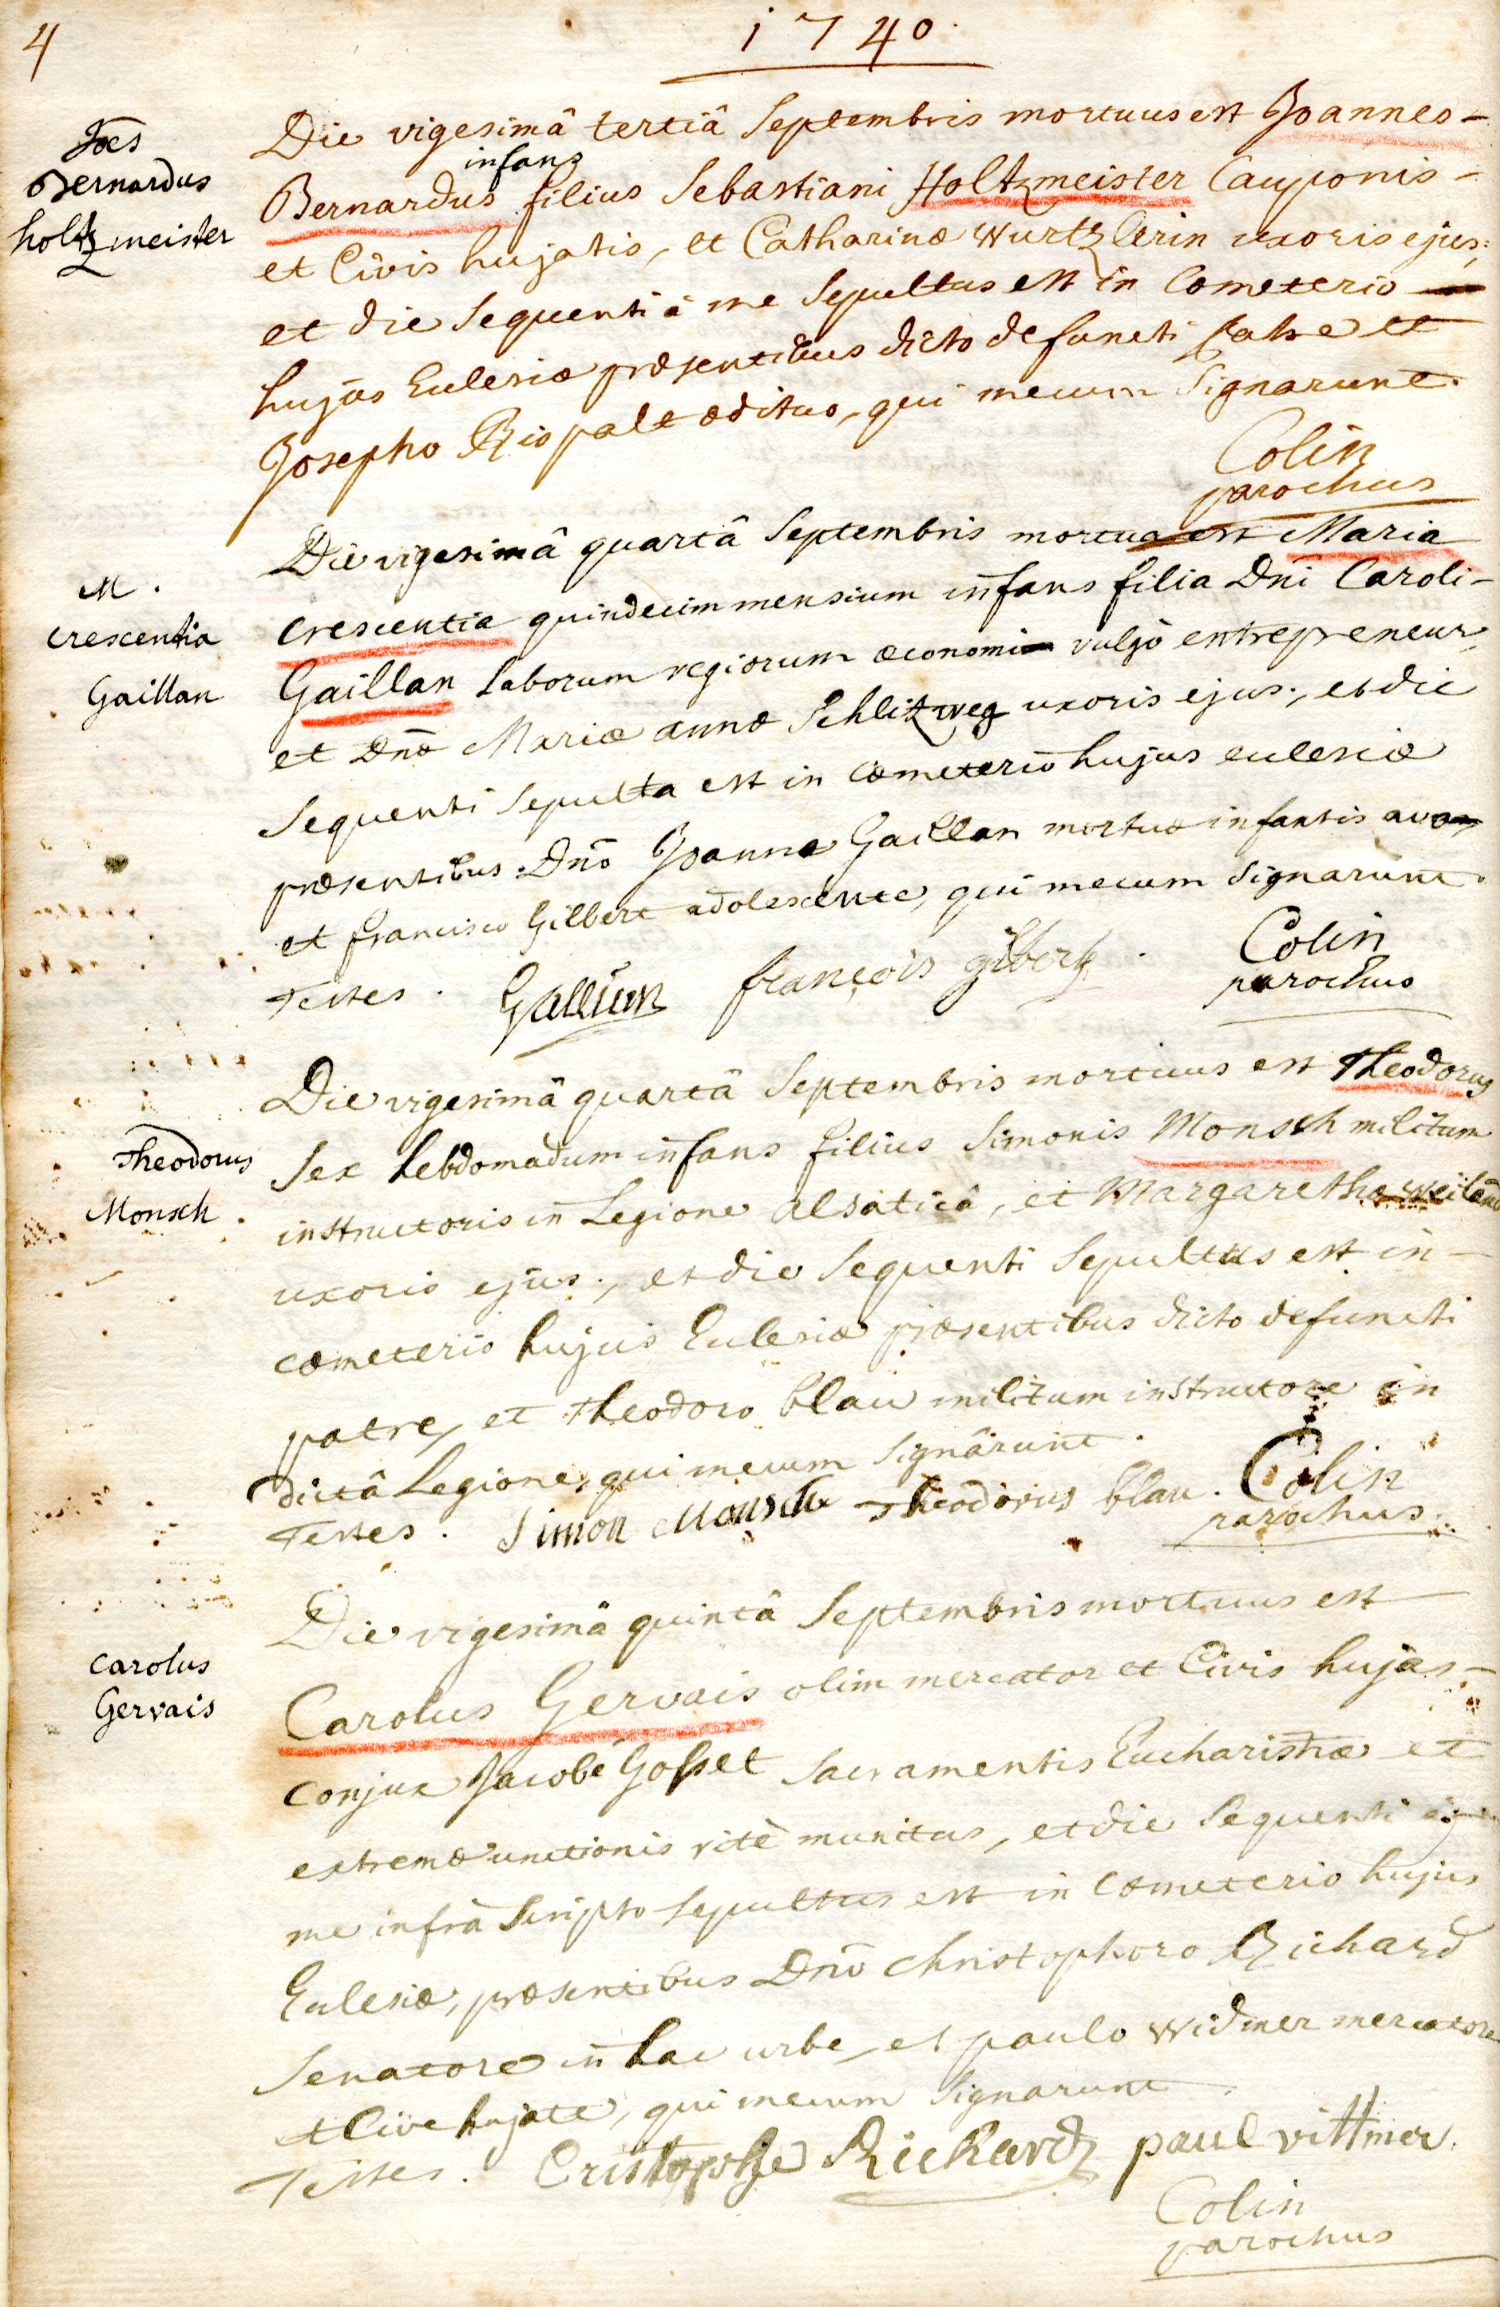 4
1740.
Joes
Bernardus
holtzmeister
Die vigesimâ tertiâ Septembris mortuus est Joannes -
infans
Bernardus filius Sebastiani Holtzmeister Cauponis -
et Civis hujatis, et Catharinæ Wurtzlerin uxoris ejus;
et die sequenti à me sepultus est in Cœmeterio
hujus Ecclesiæ præsentibus dicto defuncti patre et
Josepho Rispalt ædituo, qui mecum signarunt.
Colin
parochus
M.
Crescentia
Gaillan
Die vigesimâ quartâ Septembris mortua est Maria
Crescentia quindecim mensium infans filia Dni Caroli -
Gaillan laborum regiorum œconomi vulgò entrepreneur,
et Dnæ Mariæ annæ Schlitzweg uxoris ejus, et die
sequenti sepulta est in Cœmeterio hujus ecclesiæ
præsentibus Dno Joanne Gaillan mortuæ infantis avo
et francisco Gilbert adolescente, qui mecum signarunt.
Testes. Gallian françois gilbert. Colin
parochus
Theodorus
Monsch
Die vigesimâ quartâ Septembris mortuus est Theodorus
sex hebdomadum infans filius Simonis Monsch militum
instructoris in Legione alsaticâ, et Margarethæ
uxoris ejus, et die sequenti sepultus est in -
cœmeterio hujus Ecclesiæ præsentibus dicto defuncti
patre, et Theodoro blau militum instructore in
dictâ Legione, qui mecum signârunt.
Testes. Simon Monsch Theodorus blau. Colin
parochus
Carolus
Gervais
Die vigesimâ quintâ Septembris mortuus est
Carolus Gervais olim mercator et Civis hujas -
conjux Jacobé Gosset Sacramentis Eucharistiæ et
extremæ unctionis ritè munitus, et die sequenti à
me infrà scripto sepultus est in Cœmeterio hujus
Ecclesiæ, præsentibus Dno Christophoro Richard
Senatore in hac urbe, et paulo Widmer mercatore
et Cive hujate, qui mecum signarunt.
Testes. Cristophe Richard paul vittmer.
Colin
parochus